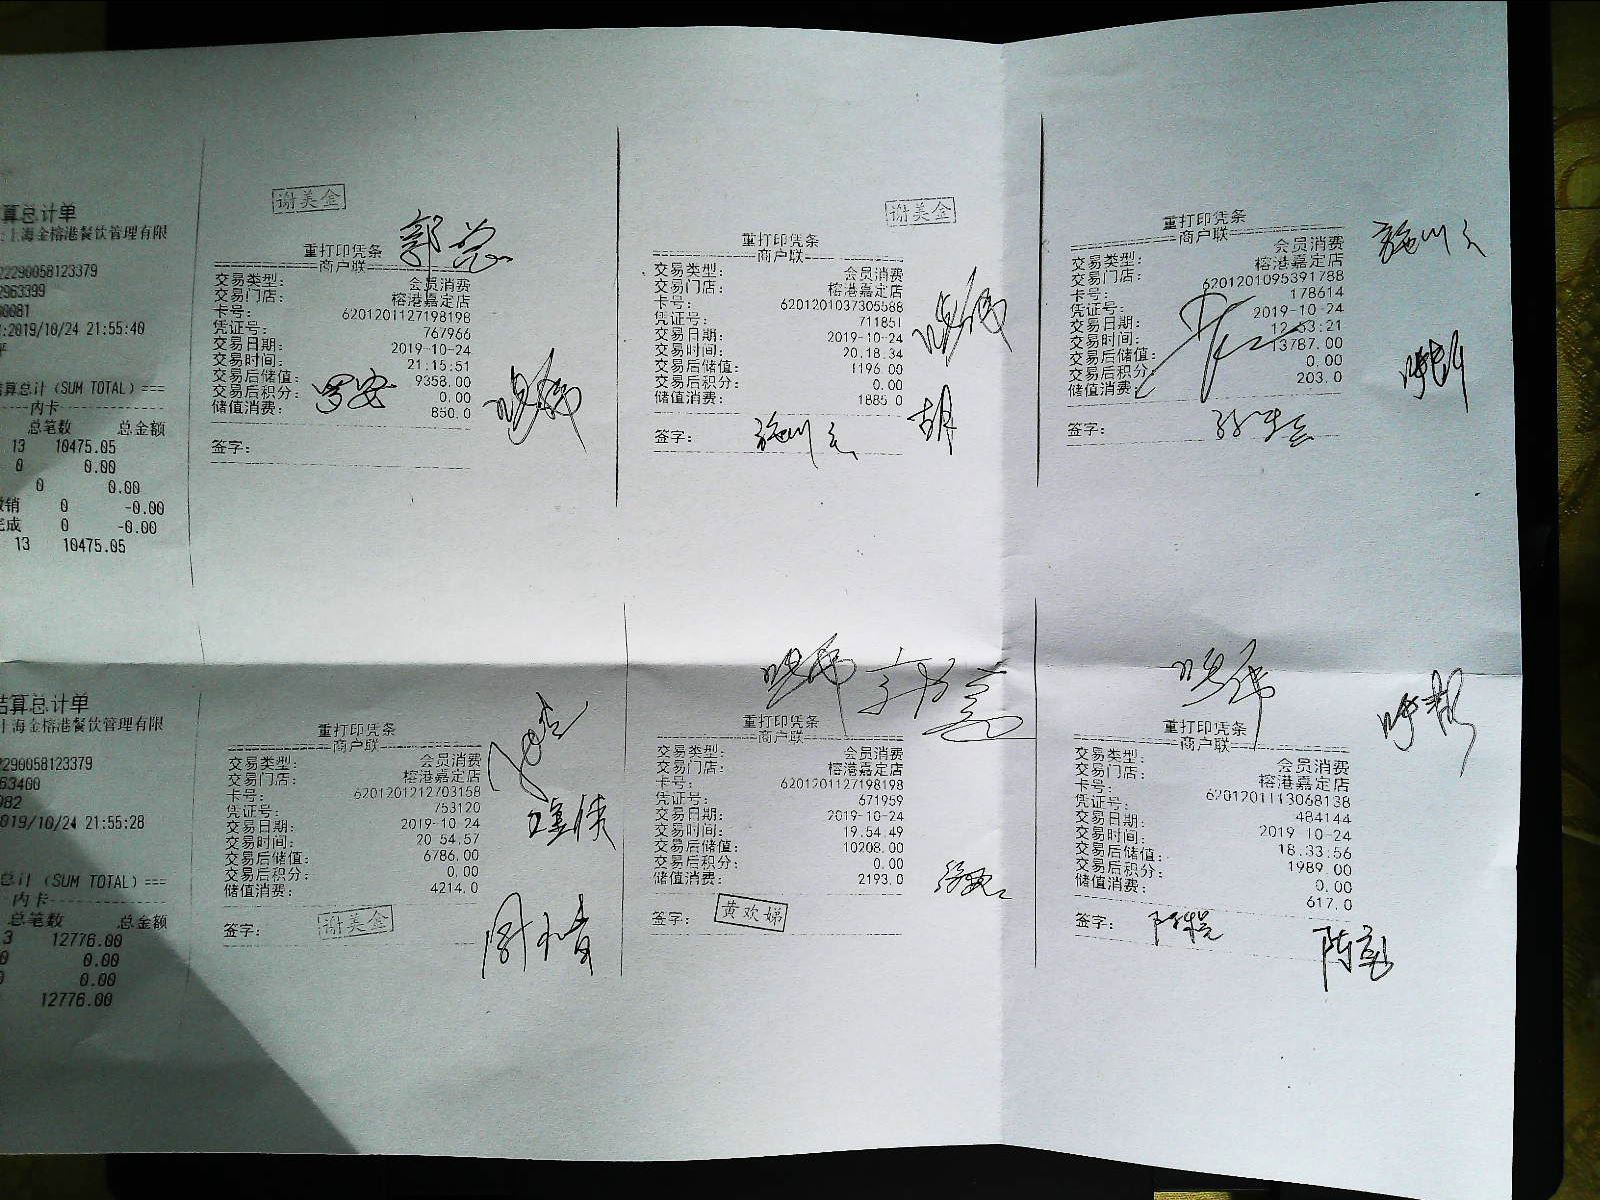 算总计单
上海金榕港餐饮管理有限
2290058123379
2963399
00081
:2019/10/24 21:55:40
结算总计 (SUM TOTAL) ===
内卡
总笔数 总金额
13 10475.05
0 0.00
0 0.00
撤销 0 -0.00
完成 0 -0.00
13 10475.05
谢美金
郭总
重打印凭条
商户联
交易类型: 会员消费
交易门店: 榕港嘉定店
卡号: 6201201127198198
凭证号: 767966
交易日期: 2019-10-24
交易时间: 21:15:51
交易后储值: 9358.00
交易后积分: 0.00
储值消费: 850.0
罗安
签字:
谢美金
重打印凭条
商户联
交易类型: 会员消费
交易门店: 榕港嘉定店
卡号: 6201201037305588
凭证号: 711851
交易日期: 2019-10-24
交易时间: 20.18.34
交易后储值: 1196.00
交易后积分: 0.00
储值消费: 1885.0
胡
签字:
重打印凭条
商户联
交易类型: 会员消费
交易门店: 榕港嘉定店
卡号: 6201201095391788
凭证号: 178614
交易日期: 2019-10-24
交易时间: 12:53:21
交易后储值: 13787.00
交易后积分: 0.00
储值消费: 203.0
签字:
结算总计单
上海金榕港餐饮管理有限
2290058123379
63400
082
019/10/24 21:55:28
总计 (SUM TOTAL) ===
内卡
总笔数 总金额
3 12776.00
0 0.00
0 0.00
12776.00
重打印凭条
商户联
交易类型: 会员消费
交易门店: 榕港嘉定店
卡号: 6201201212703158
凭证号: 753120
交易日期: 2019-10-24
交易时间: 20 54.57
交易后储值: 6786.00
交易后积分: 0.00
储值消费: 4214.0
签字: 谢美金
重打印凭条
商户联
交易类型: 会员消费
交易门店: 榕港嘉定店
卡号: 6201201127198198
凭证号: 671959
交易日期: 2019-10-24
交易时间: 19.54.49
交易后储值: 10208.00
交易后积分: 0.00
储值消费: 2193.0
签字: 黄欢娣
重打印凭条
商户联
交易类型: 会员消费
交易门店: 榕港嘉定店
卡号: 6201201113068138
凭证号: 484144
交易日期: 2019 10-24
交易时间: 18.33.56
交易后储值: 1989.00
交易后积分: 0.00
储值消费: 617.0
签字: